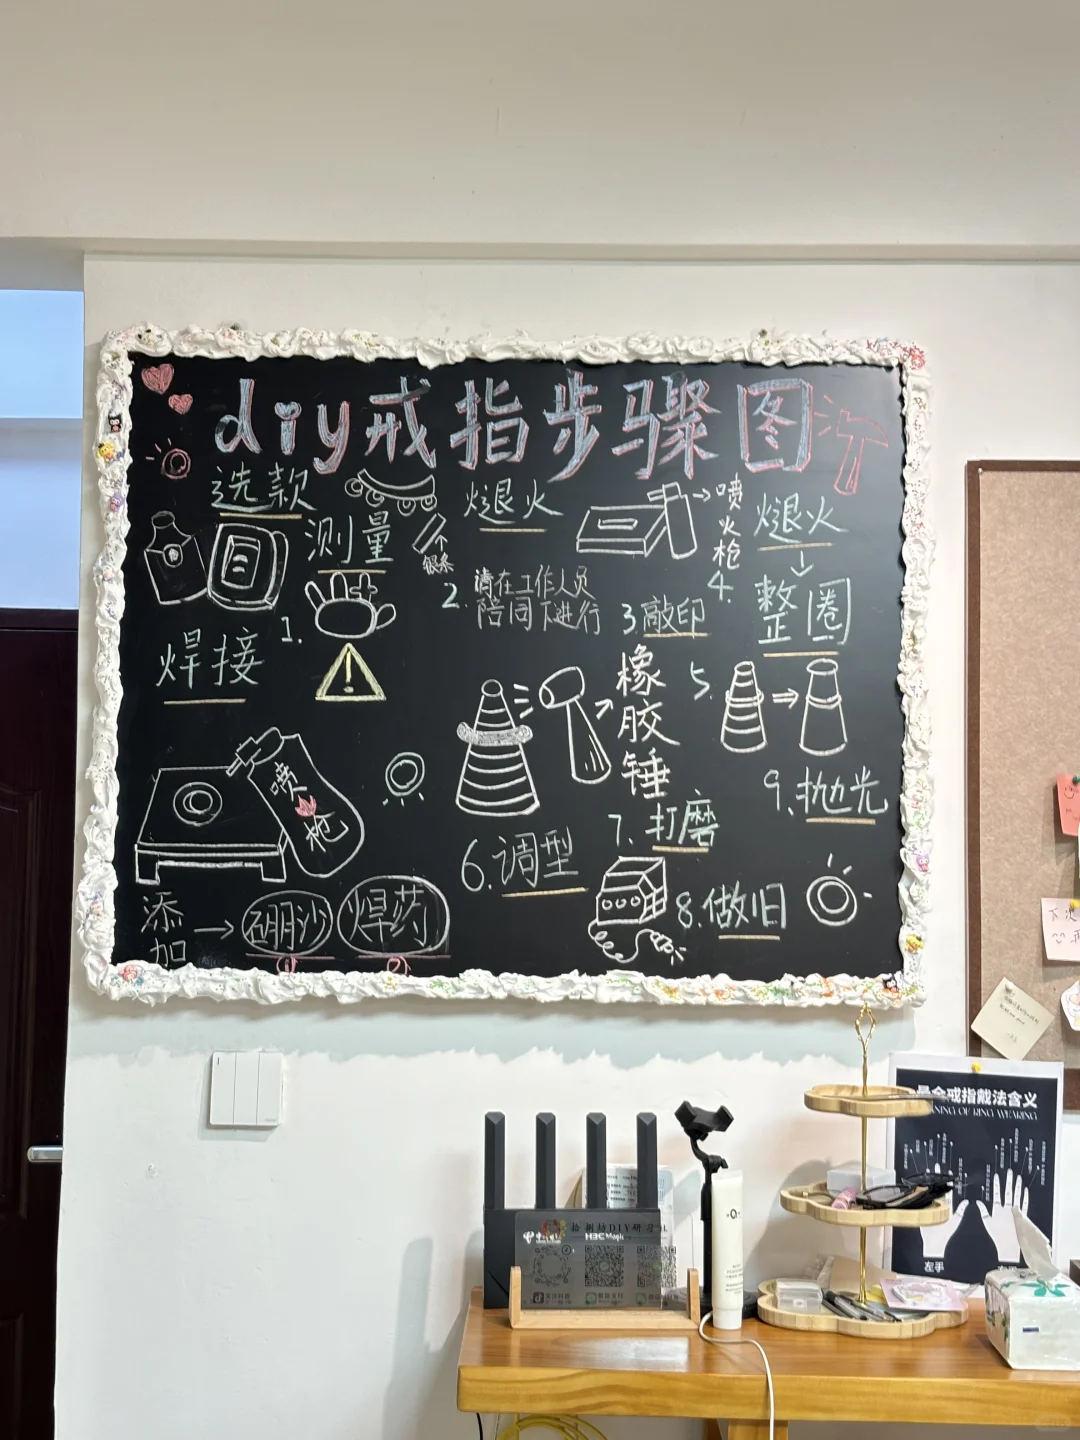 diy戒指步骤图
选款
测量
银条
1.
煺火
2.请在工作人员
陪同下进行
喷火枪
3.敲印
4.
煺火
整圈
5.
焊接
喷枪
添加
硼沙
焊药
橡胶锤
6.调型
7.打磨
8.做旧
9.抛光
金戒指戴法含义
NING OF RING WEARING
左手
拾捌坊DIY研习
H3C Magic
下次